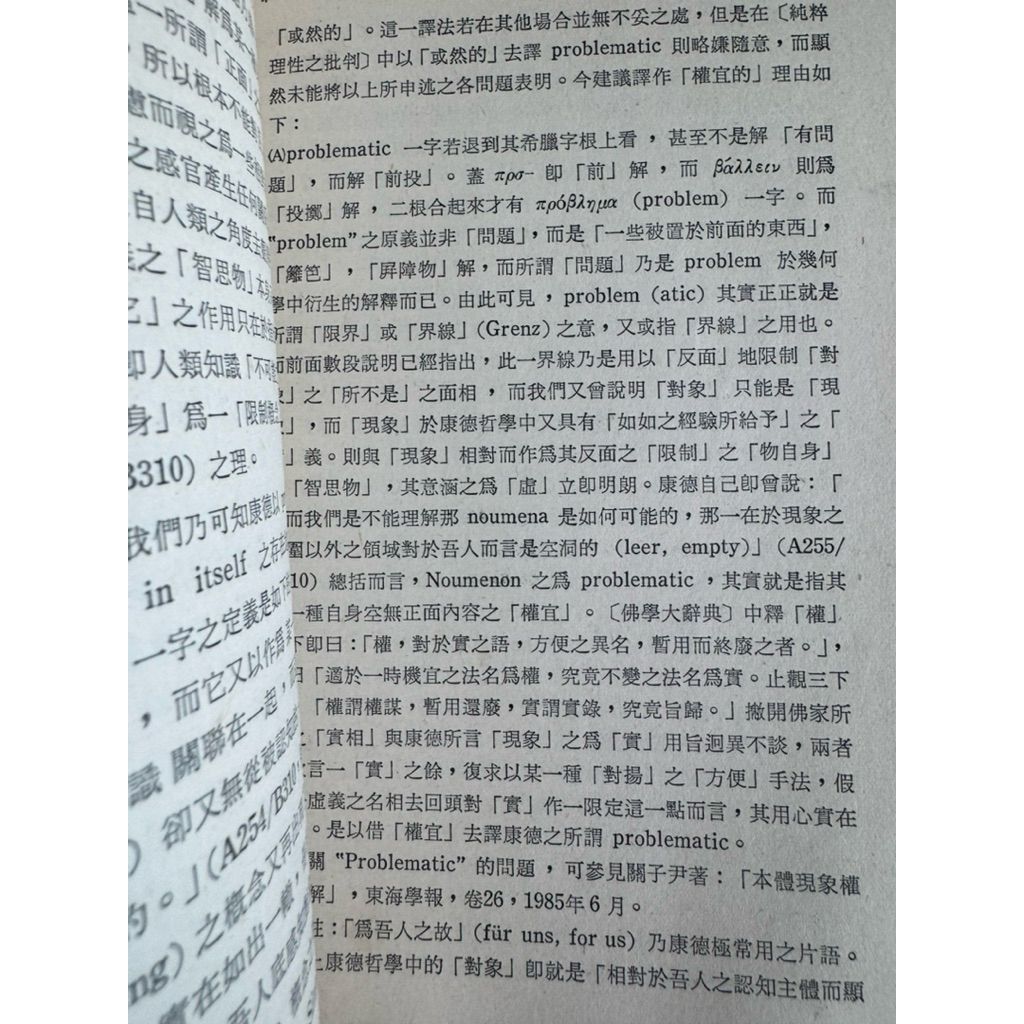 解爲某
一所謂「正面」
，所以根本不能
而視之爲一些
之感官產生任何
自人類之角度主
之「智思物」本
」之作用只在於
即人類知識「不可
身」爲一「限制概念
B310) 之理。
我們乃可知康德以
in itself 之存在
一字之定義是如下
，而它又以作爲某
識關聯在一起，
) 卻又無從被認知
的。」(A254/B310
ng) 之概念又再
實在如出一轍，
吾人底
「或然的」。這一譯法若在其他場合並無不妥之處，但是在〔純粹
理性之批判〕中以「或然的」去譯 problematic 則略嫌隨意，而顯
然未能將以上所申述之各問題表明。今建議譯作「權宜的」理由如
下：
(A)problematic 一字若退到其希臘字根上看，甚至不是解「有問
題」，而解「前投」。蓋 προ- 卽「前」解，而 βάλλειν 則爲
「投擲」解，二根合起來才有 πρόβλημα (problem) 一字。而
"problem"之原義並非「問題」，而是「一些被置於前面的東西」，
「籬笆」，「屛障物」解，而所謂「問題」乃是 problem 於幾何
學中衍生的解釋而已。由此可見，problem (atic) 其實正正就是
所謂「限界」或「界線」(Grenz) 之意，又或指「界線」之用也。
而前面數段說明已經指出，此一界線乃是用以「反面」地限制「對
象」之「所不是」之面相，而我們又曾說明「對象」只能是「現
」，而「現象」於康德哲學中又具有「如如之經驗所給予」之「
」義。則與「現象」相對而作爲其反面之「限制」之「物自身」
「智思物」，其意涵之爲「虛」立卽明朗。康德自己卽曾說：「
而我們是不能理解那 noumena 是如何可能的，那一在於現象之
圍以外之領域對於吾人而言是空洞的 (leer, empty)」(A255/
10) 總括而言，Noumenon 之爲 problematic，其實就是指其
一種自身空無正面內容之「權宜」。〔佛學大辭典〕中釋「權」
下卽曰：「權，對於實之語，方便之異名，暫用而終廢之者。」，
「適於一時機宜之法名爲權，究竟不變之法名爲實。止觀三下
「權謂權謀，暫用還廢，實謂實錄，究竟旨歸。」撇開佛家所
「實相」與康德所言「現象」之爲「實」用旨迥異不談，兩者
言一「實」之餘，復求以某一種「對揚」之「方便」手法，假
虛義之名相去回頭對「實」作一限定這一點而言，其用心實在
。是以借「權宜」去譯康德之所謂 problematic。
關 "Problematic" 的問題，可參見關子尹著：「本體現象權
解」，東海學報，卷26，1985年6月。
註：「爲吾人之故」(für uns, for us) 乃康德極常用之片語。
上康德哲學中的「對象」卽就是「相對於吾人之認知主體而顯